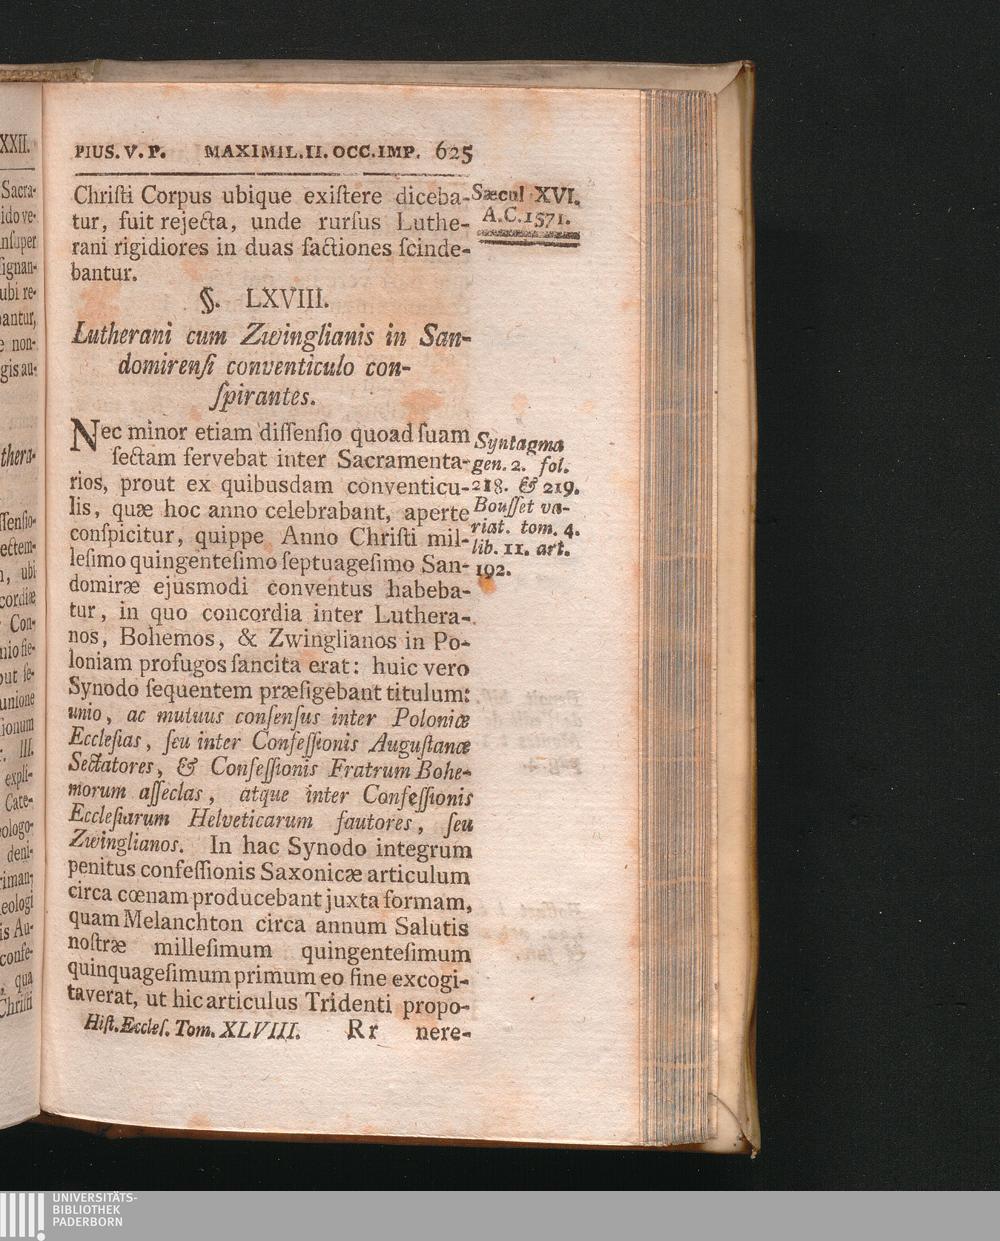 XXII.
Sacra-
ido ve-
insuper
signan-
ubi re-
antur,
non-
gis au-
thera-
ssensio-
ectem-
ubi
cordiæ
Con-
nio fie-
out se-
unione
sionum
III.
expli-
Cate-
ologo-
deni-
eologi
is Au-
confe-
qua
Christi
PIUS. V. P. MAXIMIL. II. OCC. IMP. 625
Chriſti Corpus ubique exiſtere diceba-
tur, fuit rejecta, unde rurſus Luthe-
rani rigidiores in duas factiones ſcinde-
bantur.
Sæcul XVI.
A. C. 1571.
§. LXVIII.
Lutherani cum Zwinglianis in San-
domirenſi conventiculo con-
ſpirantes.
Nec minor etiam diſſenſio quoad ſuam
ſectam fervebat inter Sacramenta-
rios, prout ex quibusdam conventicu-
lis, quæ hoc anno celebrabant, aperte
conſpicitur, quippe Anno Chriſti mil-
leſimo quingenteſimo ſeptuageſimo San-
domiræ ejusmodi conventus habeba-
tur, in quo concordia inter Luthera-
nos, Bohemos, & Zwinglianos in Po-
loniam profugos ſancita erat: huic vero
Synodo ſequentem præfigebant titulum:
unio, ac mutuus conſenſus inter Poloniæ
Eccleſias, ſeu inter Confeſſionis Auguſtanæ
Sectatores, & Confeſſionis Fratrum Bohe-
morum aſſeclas, atque inter Confeſſionis
Eccleſiarum Helveticarum fautores, ſeu
Zwinglianos. In hac Synodo integrum
penitus confeſſionis Saxonicæ articulum
circa cœnam producebant juxta formam,
quam Melanchton circa annum Salutis
noſtræ milleſimum quingenteſimum
quinquageſimum primum eo fine excogi-
taverat, ut hic articulus Tridenti propo-
Syntagma
gen. 2. fol.
218. & 219.
Bouſſet va-
riat. tom. 4.
lib. 11. art.
192.
Hiſt. Eccleſ. Tom. XLVIII. Rr nere-
UNIVERSITÄTS-
BIBLIOTHEK
PADERBORN